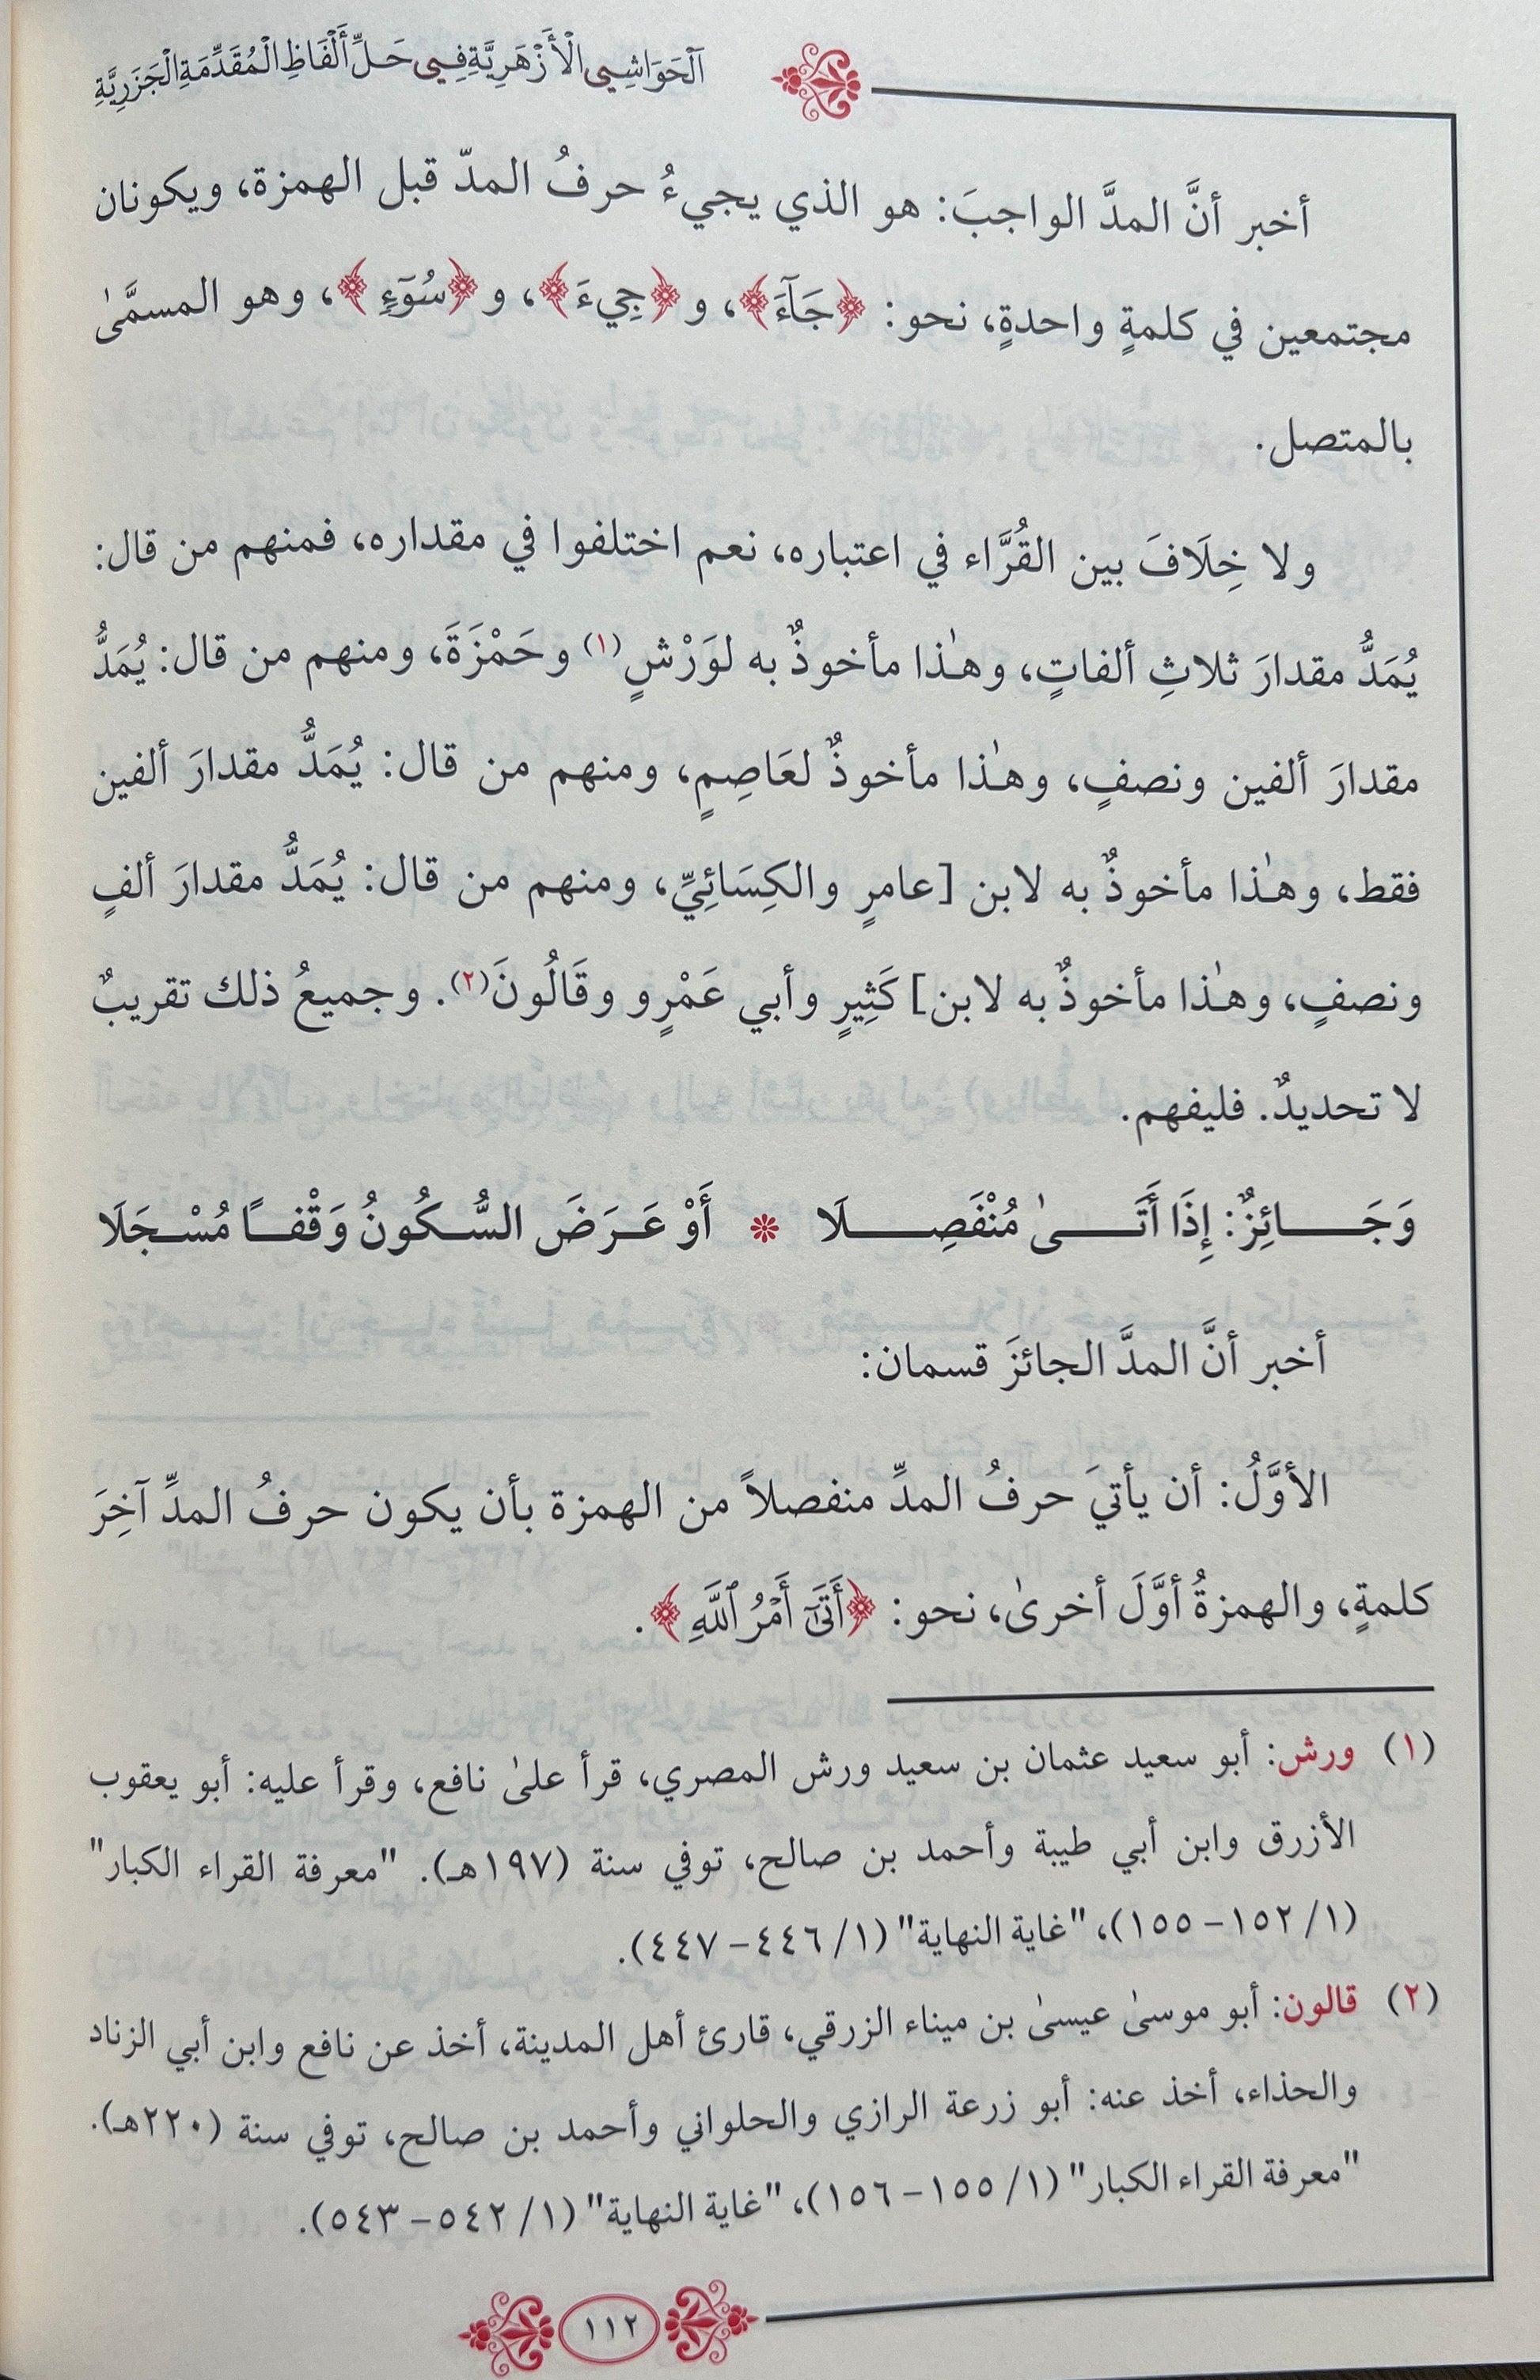 اَلْحَوَاشِي الْأَزْهَرِيَّةِ فِي حَلِّ أَلْفَاظِ الْمُقَدِّمَةِ الْجَزَرِيَّةِ
أخبر أنَّ المدَّ الواجبَ: هو الذي يجيءُ حرفُ المدّ قبل الهمزة، ويكونان
مجتمعين في كلمةٍ واحدةٍ، نحو: ﴿جَآءَ﴾، و﴿جِيءَ﴾، و﴿سُوٓءٍ﴾، وهو المسمَّىٰ
بالمتصل.
ولا خِلَافَ بين القُرَّاء في اعتباره، نعم اختلفوا في مقداره، فمنهم من قال:
يُمَدُّ مقدارَ ثلاثِ ألفاتٍ، وهـٰذا مأخوذٌ به لوَرْشٍ(١) وحَمْزَةَ، ومنهم من قال: يُمَدُّ
مقدارَ ألفين ونصفٍ، وهـٰذا مأخوذٌ لعَاصِمٍ، ومنهم من قال: يُمَدُّ مقدارَ ألفين
فقط، وهـٰذا مأخوذٌ به لابن [عامرٍ والكِسَائِيِّ، ومنهم من قال: يُمَدُّ مقدارَ ألفٍ
ونصفٍ، وهـٰذا مأخوذٌ به لابن] كَثِيرٍ وأبي عَمْرٍو وقَالُونَ(٢). وجميعُ ذلك تقريبٌ
لا تحديدٌ. فليفهم.
وَجَـــائِزٌ: إِذَا أَتَـــىٰ مُنْفَصِـــلَا ❊ أَوْ عَـرَضَ السُّـكُونُ وَقْفـًا مُسْـجَلَا
أخبر أنَّ المدَّ الجائزَ قسمان:
الأوَّلُ: أن يأتيَ حرفُ المدِّ منفصلاً من الهمزة بأن يكون حرفُ المدِّ آخِرَ
كلمةٍ، والهمزةُ أوَّلَ أخرىٰ، نحو: ﴿أَتَىٰٓ أَمْرُ ٱللَّهِ﴾.
(١) ورش: أبو سعيد عثمان بن سعيد ورش المصري، قرأ علىٰ نافع، وقرأ عليه: أبو يعقوب
الأزرق وابن أبي طيبة وأحمد بن صالح، توفي سنة (١٩٧هـ). "معرفة القراء الكبار"
(١/ ١٥٢- ١٥٥)، "غاية النهاية" (١/ ٤٤٦- ٤٤٧).
(٢) قالون: أبو موسىٰ عيسىٰ بن ميناء الزرقي، قارئ أهل المدينة، أخذ عن نافع وابن أبي الزناد
والحذاء، أخذ عنه: أبو زرعة الرازي والحلواني وأحمد بن صالح، توفي سنة (٢٢٠هـ).
"معرفة القراء الكبار" (١/ ١٥٥- ١٥٦)، "غاية النهاية" (١/ ٥٤٢- ٥٤٣).
١١٢